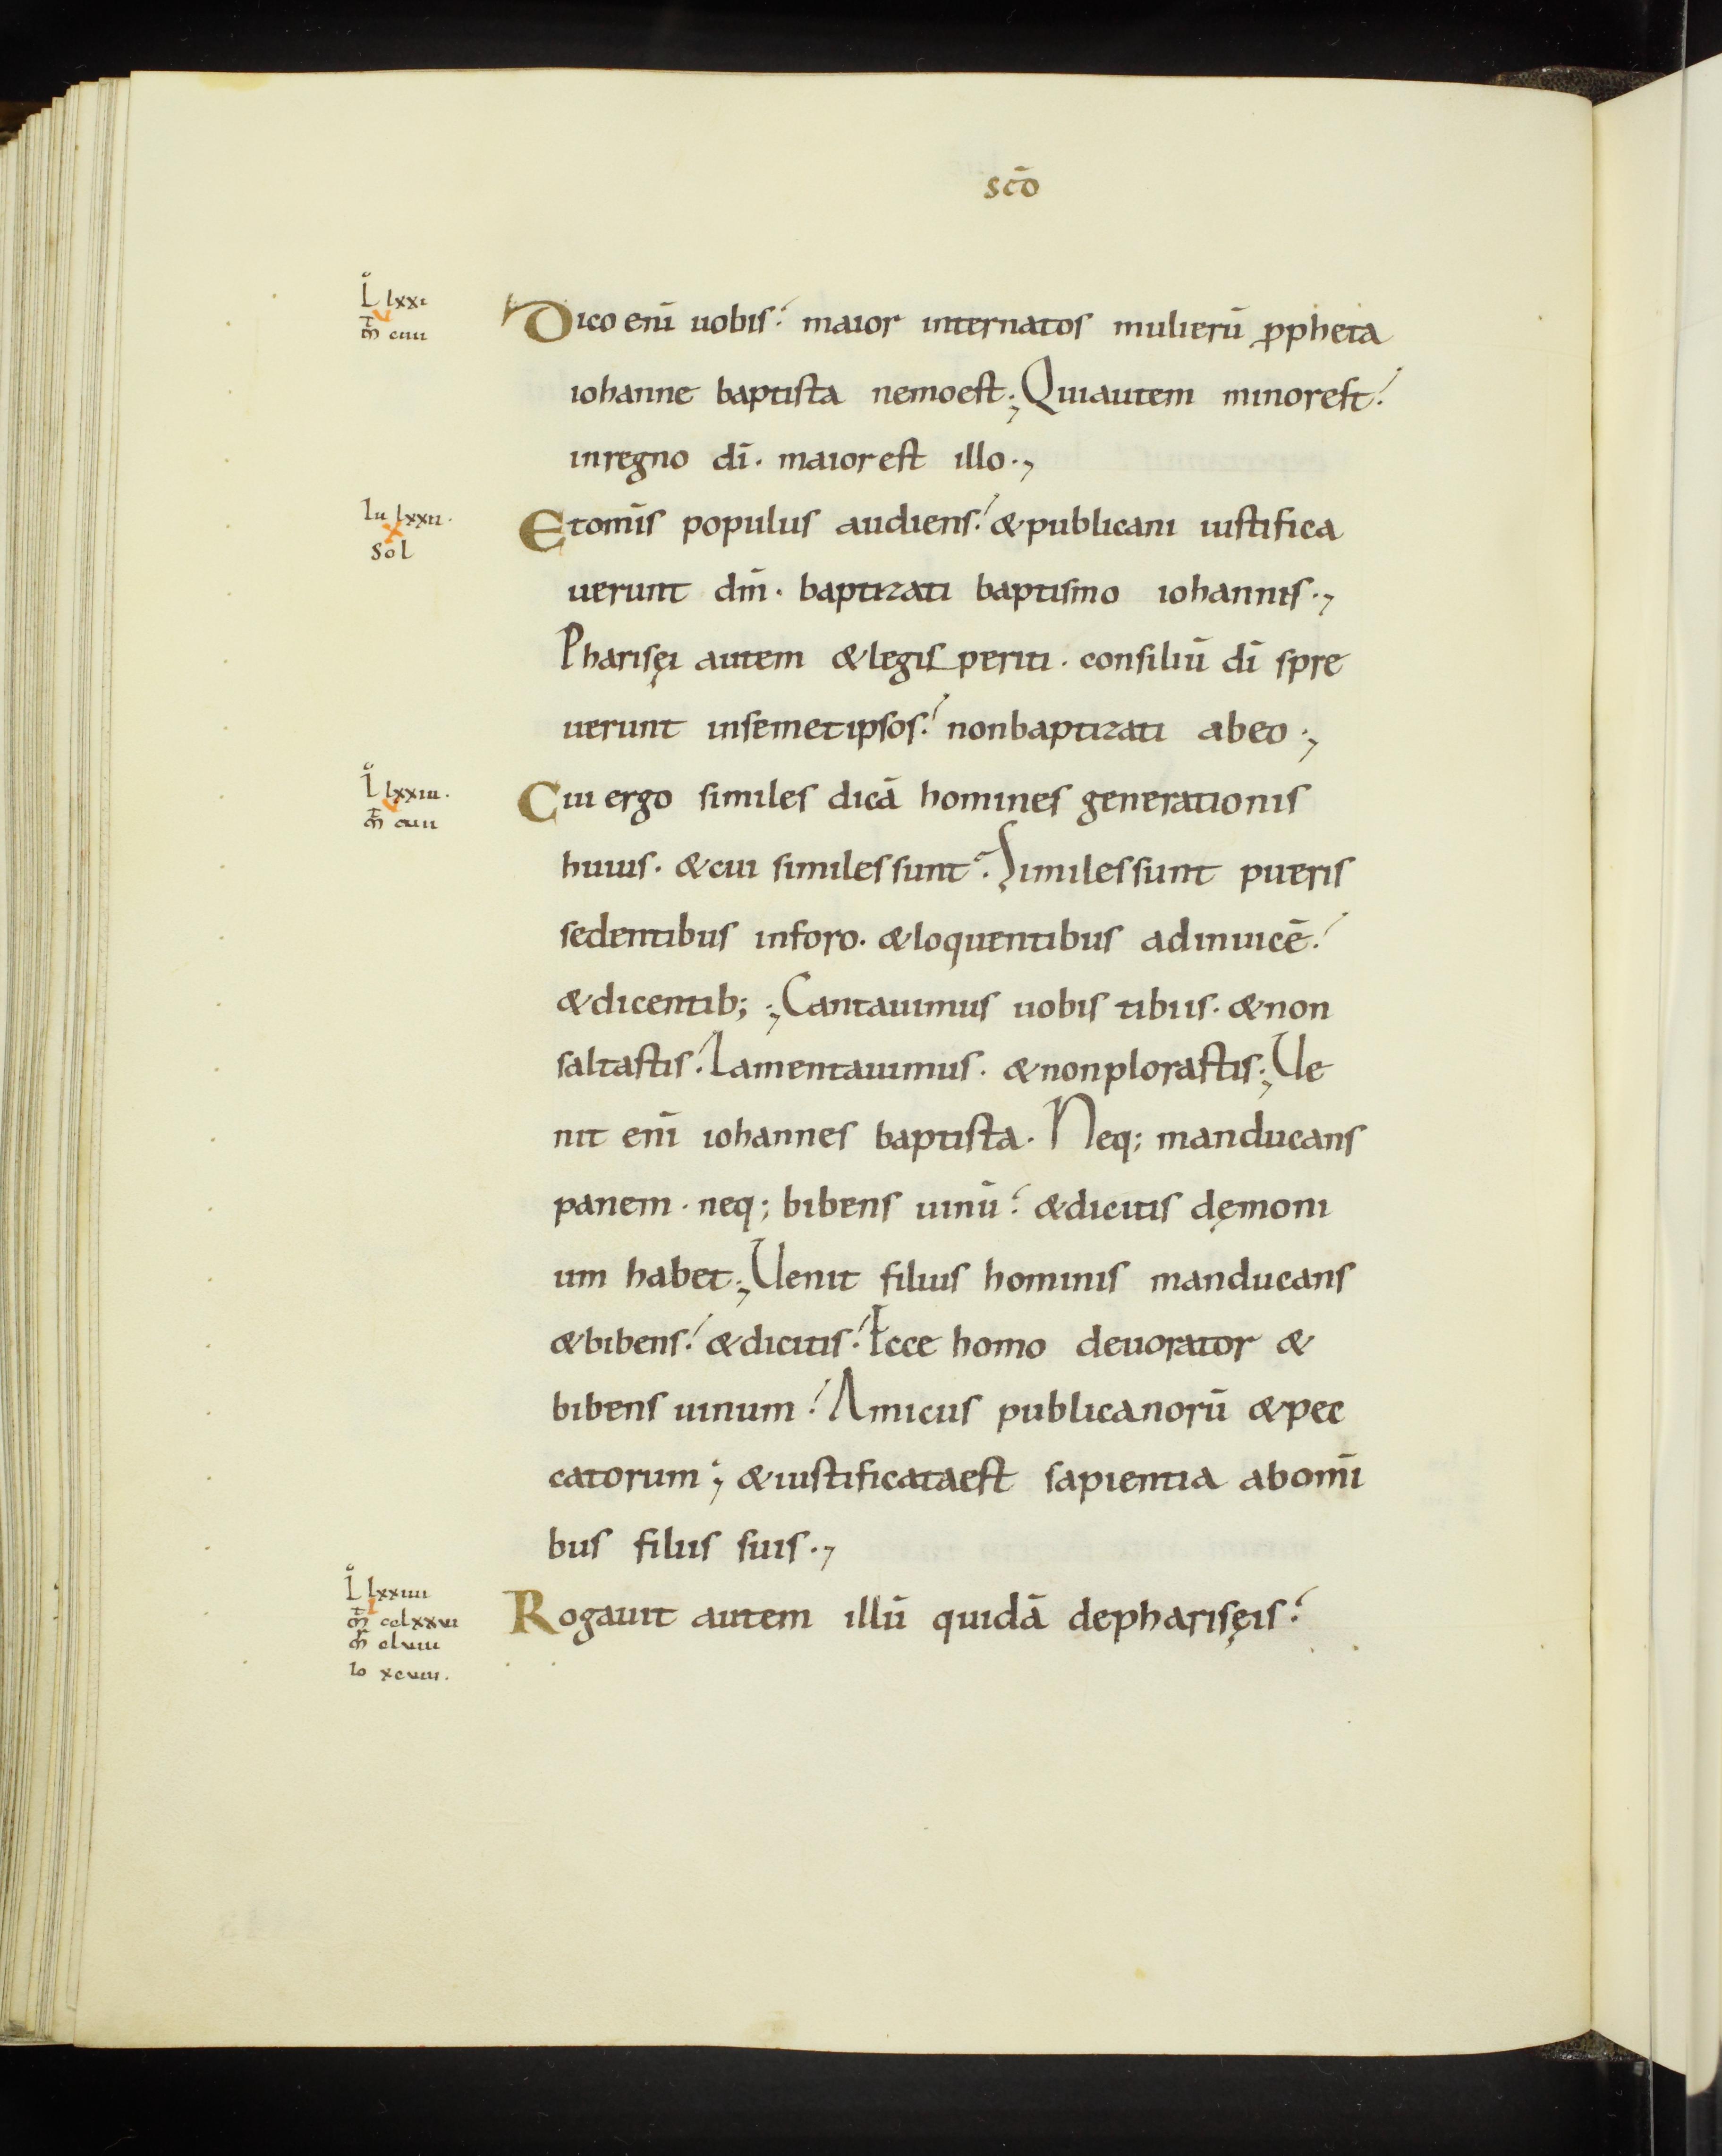 scō
L̊ lxxı
m̄ cıııı
Dico enī uobis: maior internatos mulierū ꝓpheta
iohanne baptista nemoest; Quiautem minorest:
inregno dī. maiorest illo.,
Lu lxxıı.
Sol
Etomīs populus audiens: &publicani iustifica
uerunt dm̄. baptizati baptismo iohannis.,
Pharisęi autem &legis periti. consiliū dī spre
uerunt insemetipsos: nonbaptizati abeo.,
L̊ lxxııı.
m̄ cuıı
Cui ergo similes dicā homines generationis
huius. &cui similessunt? Similessunt pueris
sedentibus inforo. &loquentibus adinuicē:
&dicentib; ; Cantauimus uobis tibiis. &non
saltastis: Lamentauimus. &nonplorastis; Ue
nit enī iohannes baptista. Neq; manducans
panem. neq; bibens uinū: &dicitis dęmoni
um habet; Uenit filius hominis manducans
&bibens: &dicitis: Ecce homo deuorator &
bibens uinum: Amicus publicanorū &pec
catorum; &iustificataest sapientia abomī
bus filiis suis.,
L̊ lxxıııı
m̄ cclxxuı
m̄ cluııı
Io xcuııı.
Rogauit autem illū quidā depharisęis: